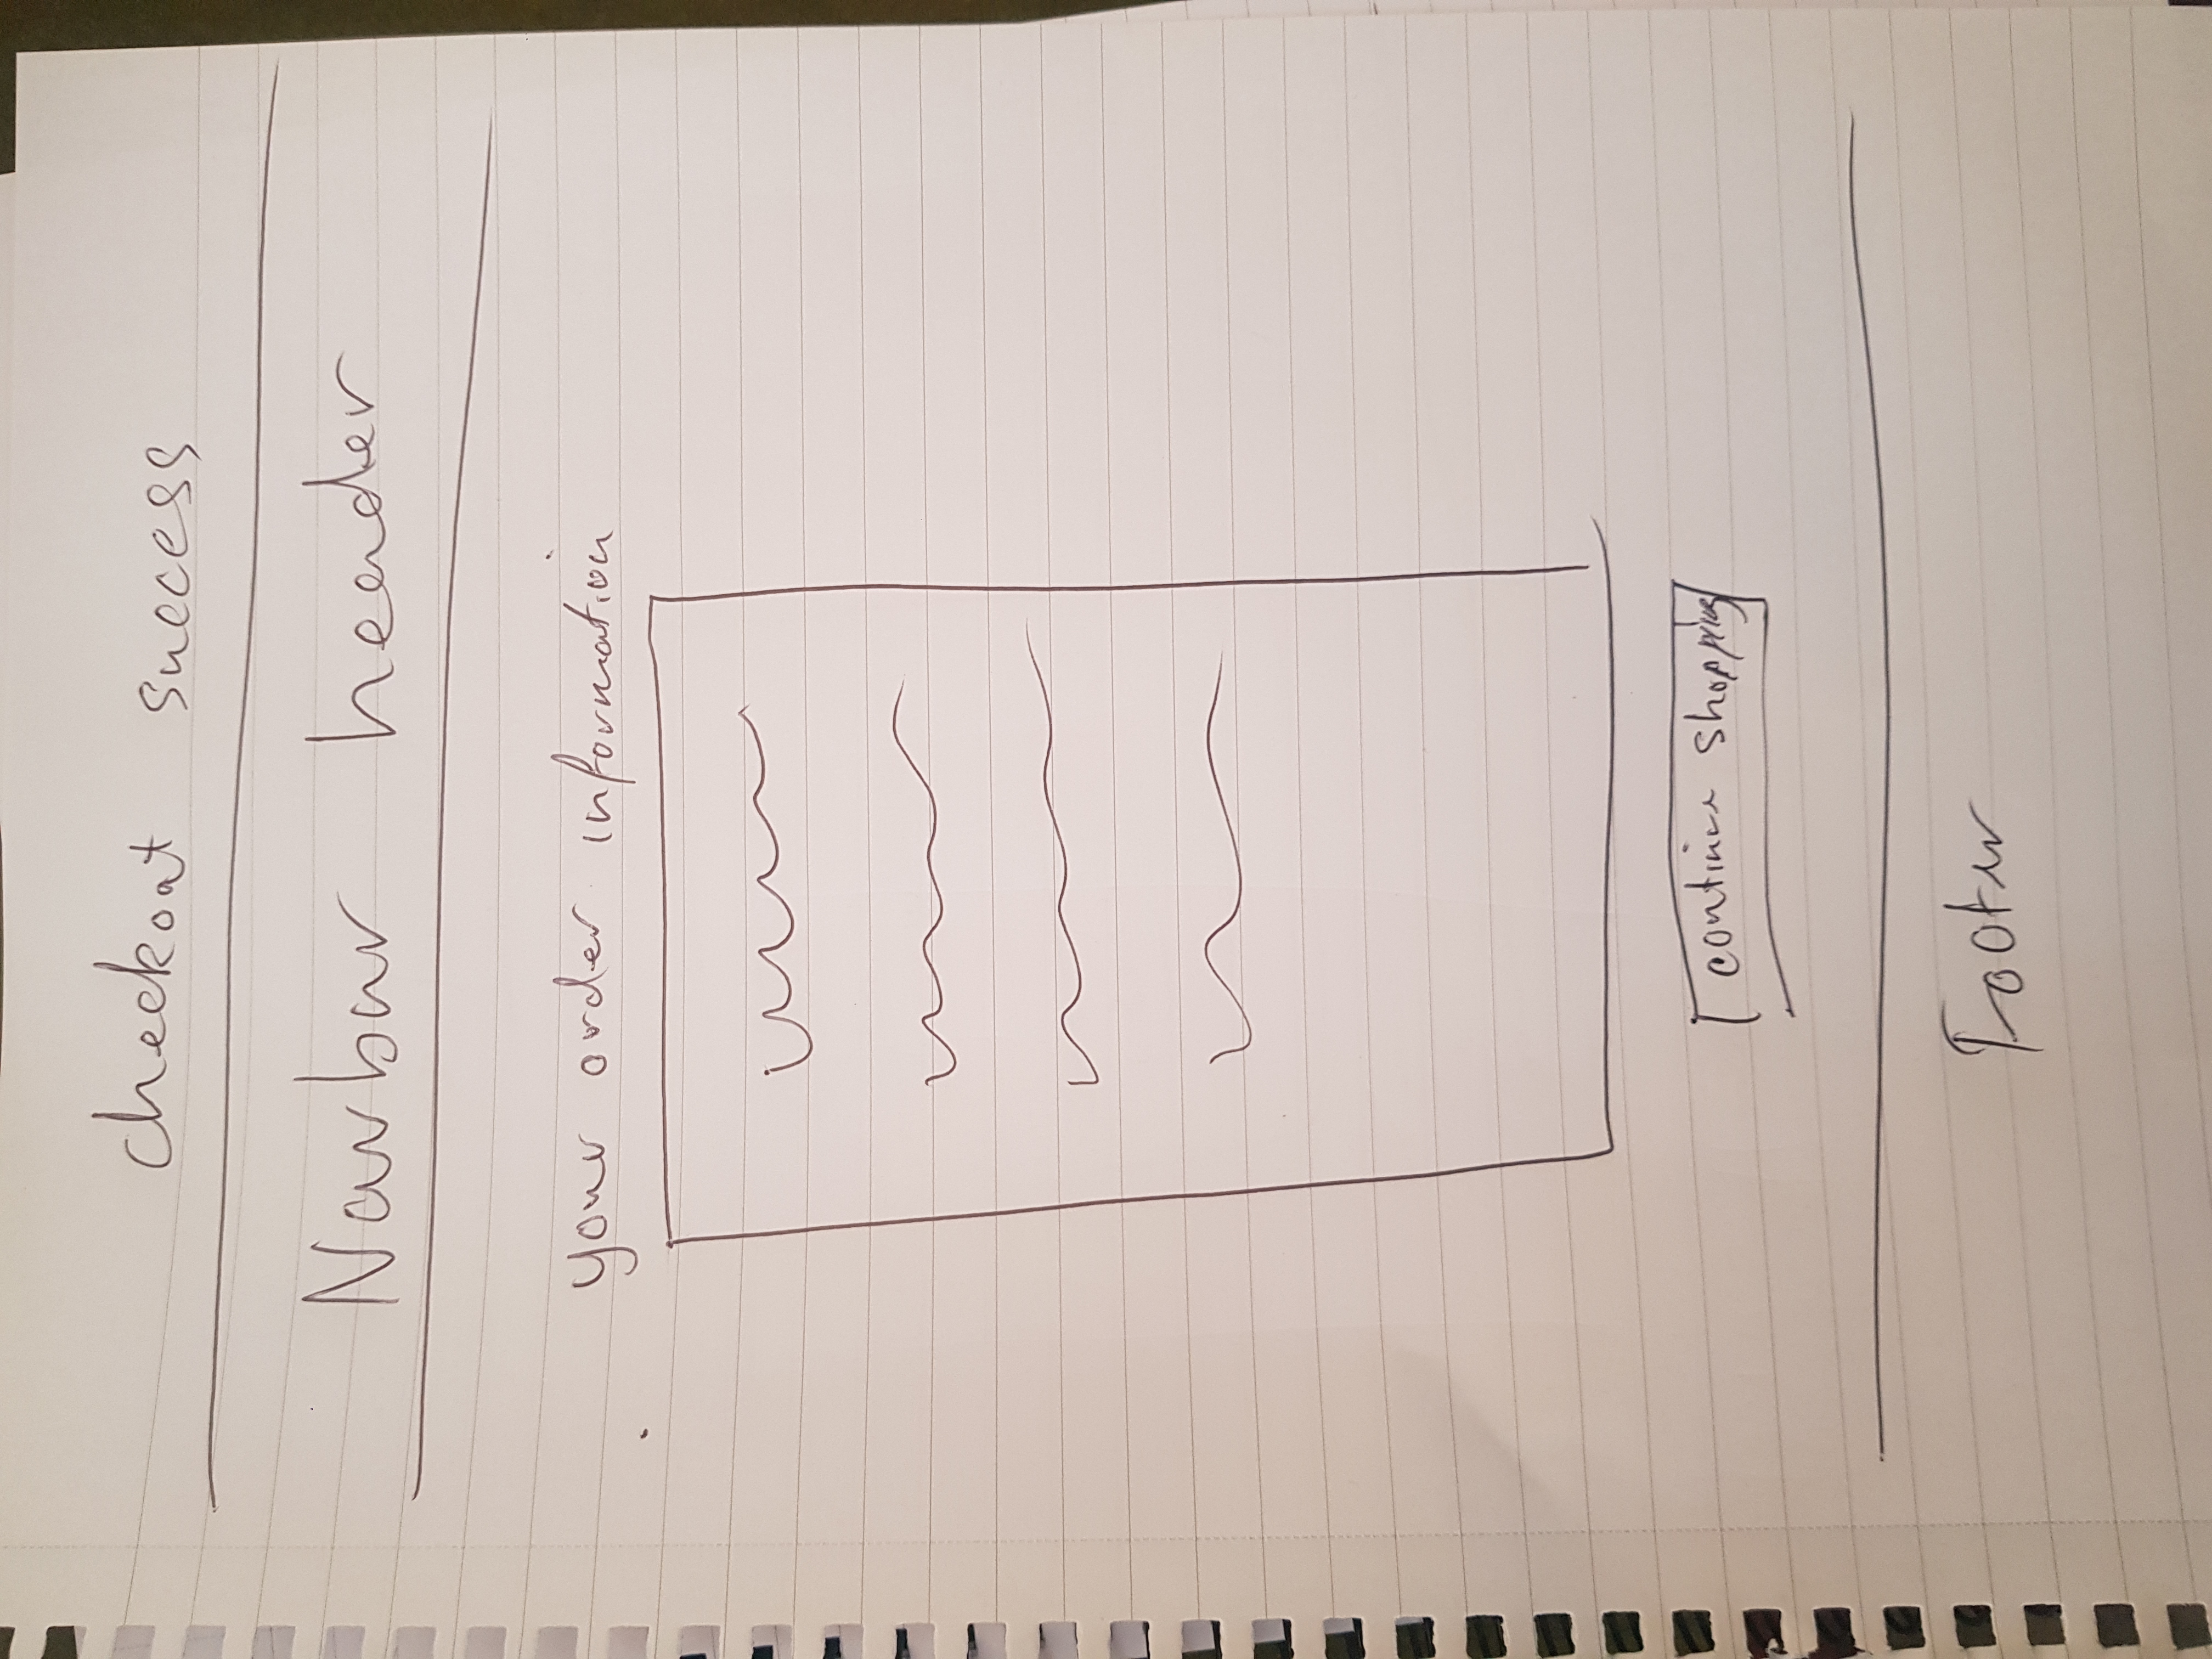 checkout success
Navbar header
your order information
continue shopping
Footer